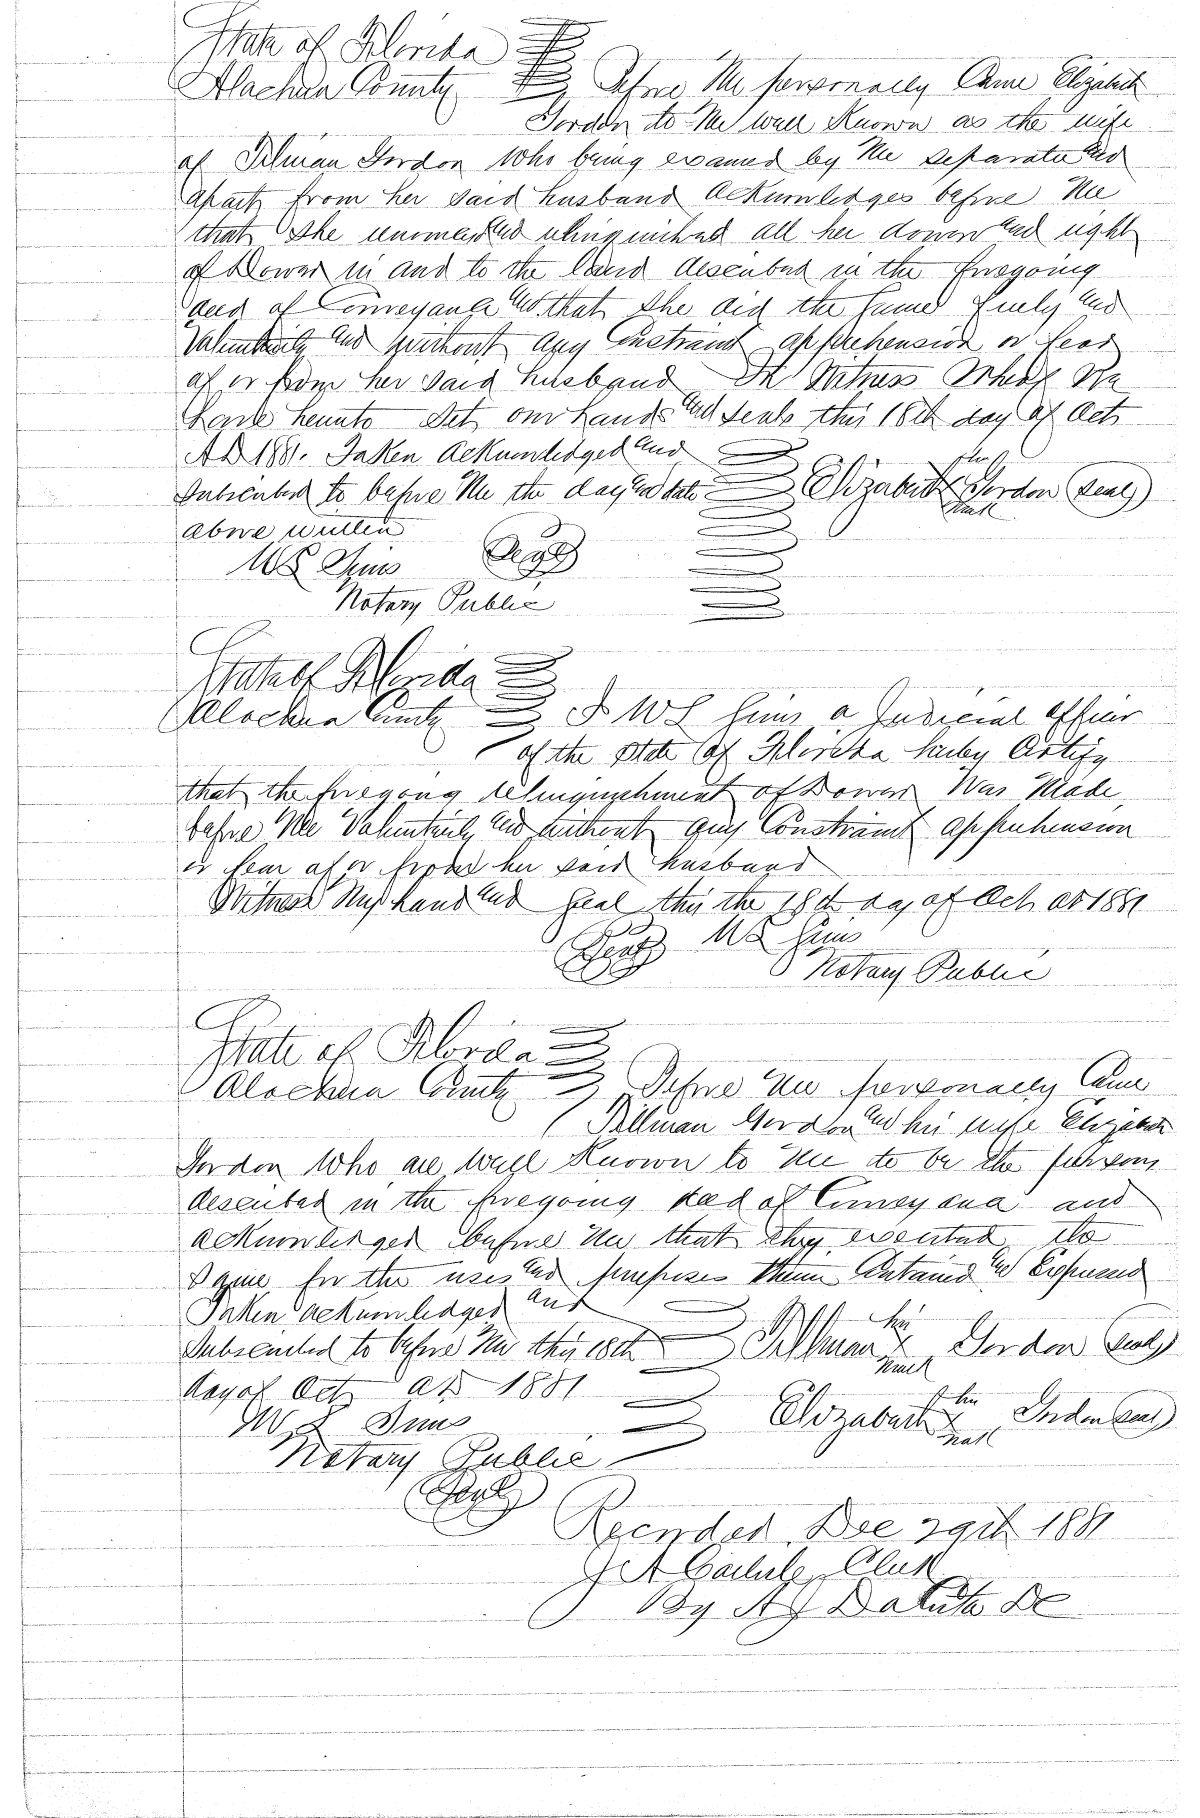 State of Florida
Alachua County Before Me personally Came Elizabeth
Gordon to Me well Known as the wife
of Tilman Gordon Who being examed by Me separate and
apart from her said husband acknowledges before Me
that She renounced and relinquished all her dower and right
of Dower in and to the land described in the foregoing
deed of Conveyance and that She did the Same freely and
Valuntarily and without any Constraint apprehension or fear
of or from her said husband In Witness Whereof We
have hereunto Set our hands and seals this 18th day of Oct
AD 1881. Taken acknowledged and
Subscribed to before Me the day and date Elizabeth her Gordon (Seal)
mark
above written
W S Sims Seal
Notary Public
State of Florida
Alachua County I W S Sims a Judicial officer
of the State of Florida hereby Certify
that the foregoing relinquishment of Dower Was Made
before Me Valuntarily and without any Constraint apprehension
or fear of or from her said husband
Witness My hand and Seal this the 18th day of Oct AD 1881
Seal W S Sims
Notary Public
State of Florida
Alachua County Before Me personally Came
Tillman Gordon and his wife Elizabeth
Gordon Who are well Known to Me to be the persons
described in the foregoing deed of Conveyance and
acknowledged before Me that they executed the
Same for the uses and purposes therein Contained and Expressed
Taken acknowledged and
Subscribed to before Me this 18th Tillman his x Gordon (Seal)
mark
day of Oct AD 1881
W S Sims Elizabeth her x Gordon (Seal)
mark
Notary Public
Seal
Recorded Dec 29th 1881
J A Carlisle Clerk
By A J DaCosta DC